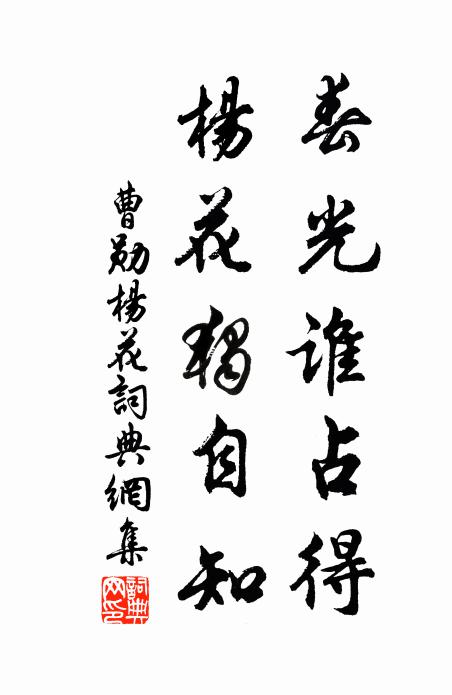 春光誰占得
楊花獨自知
曹勛楊花詞典網集